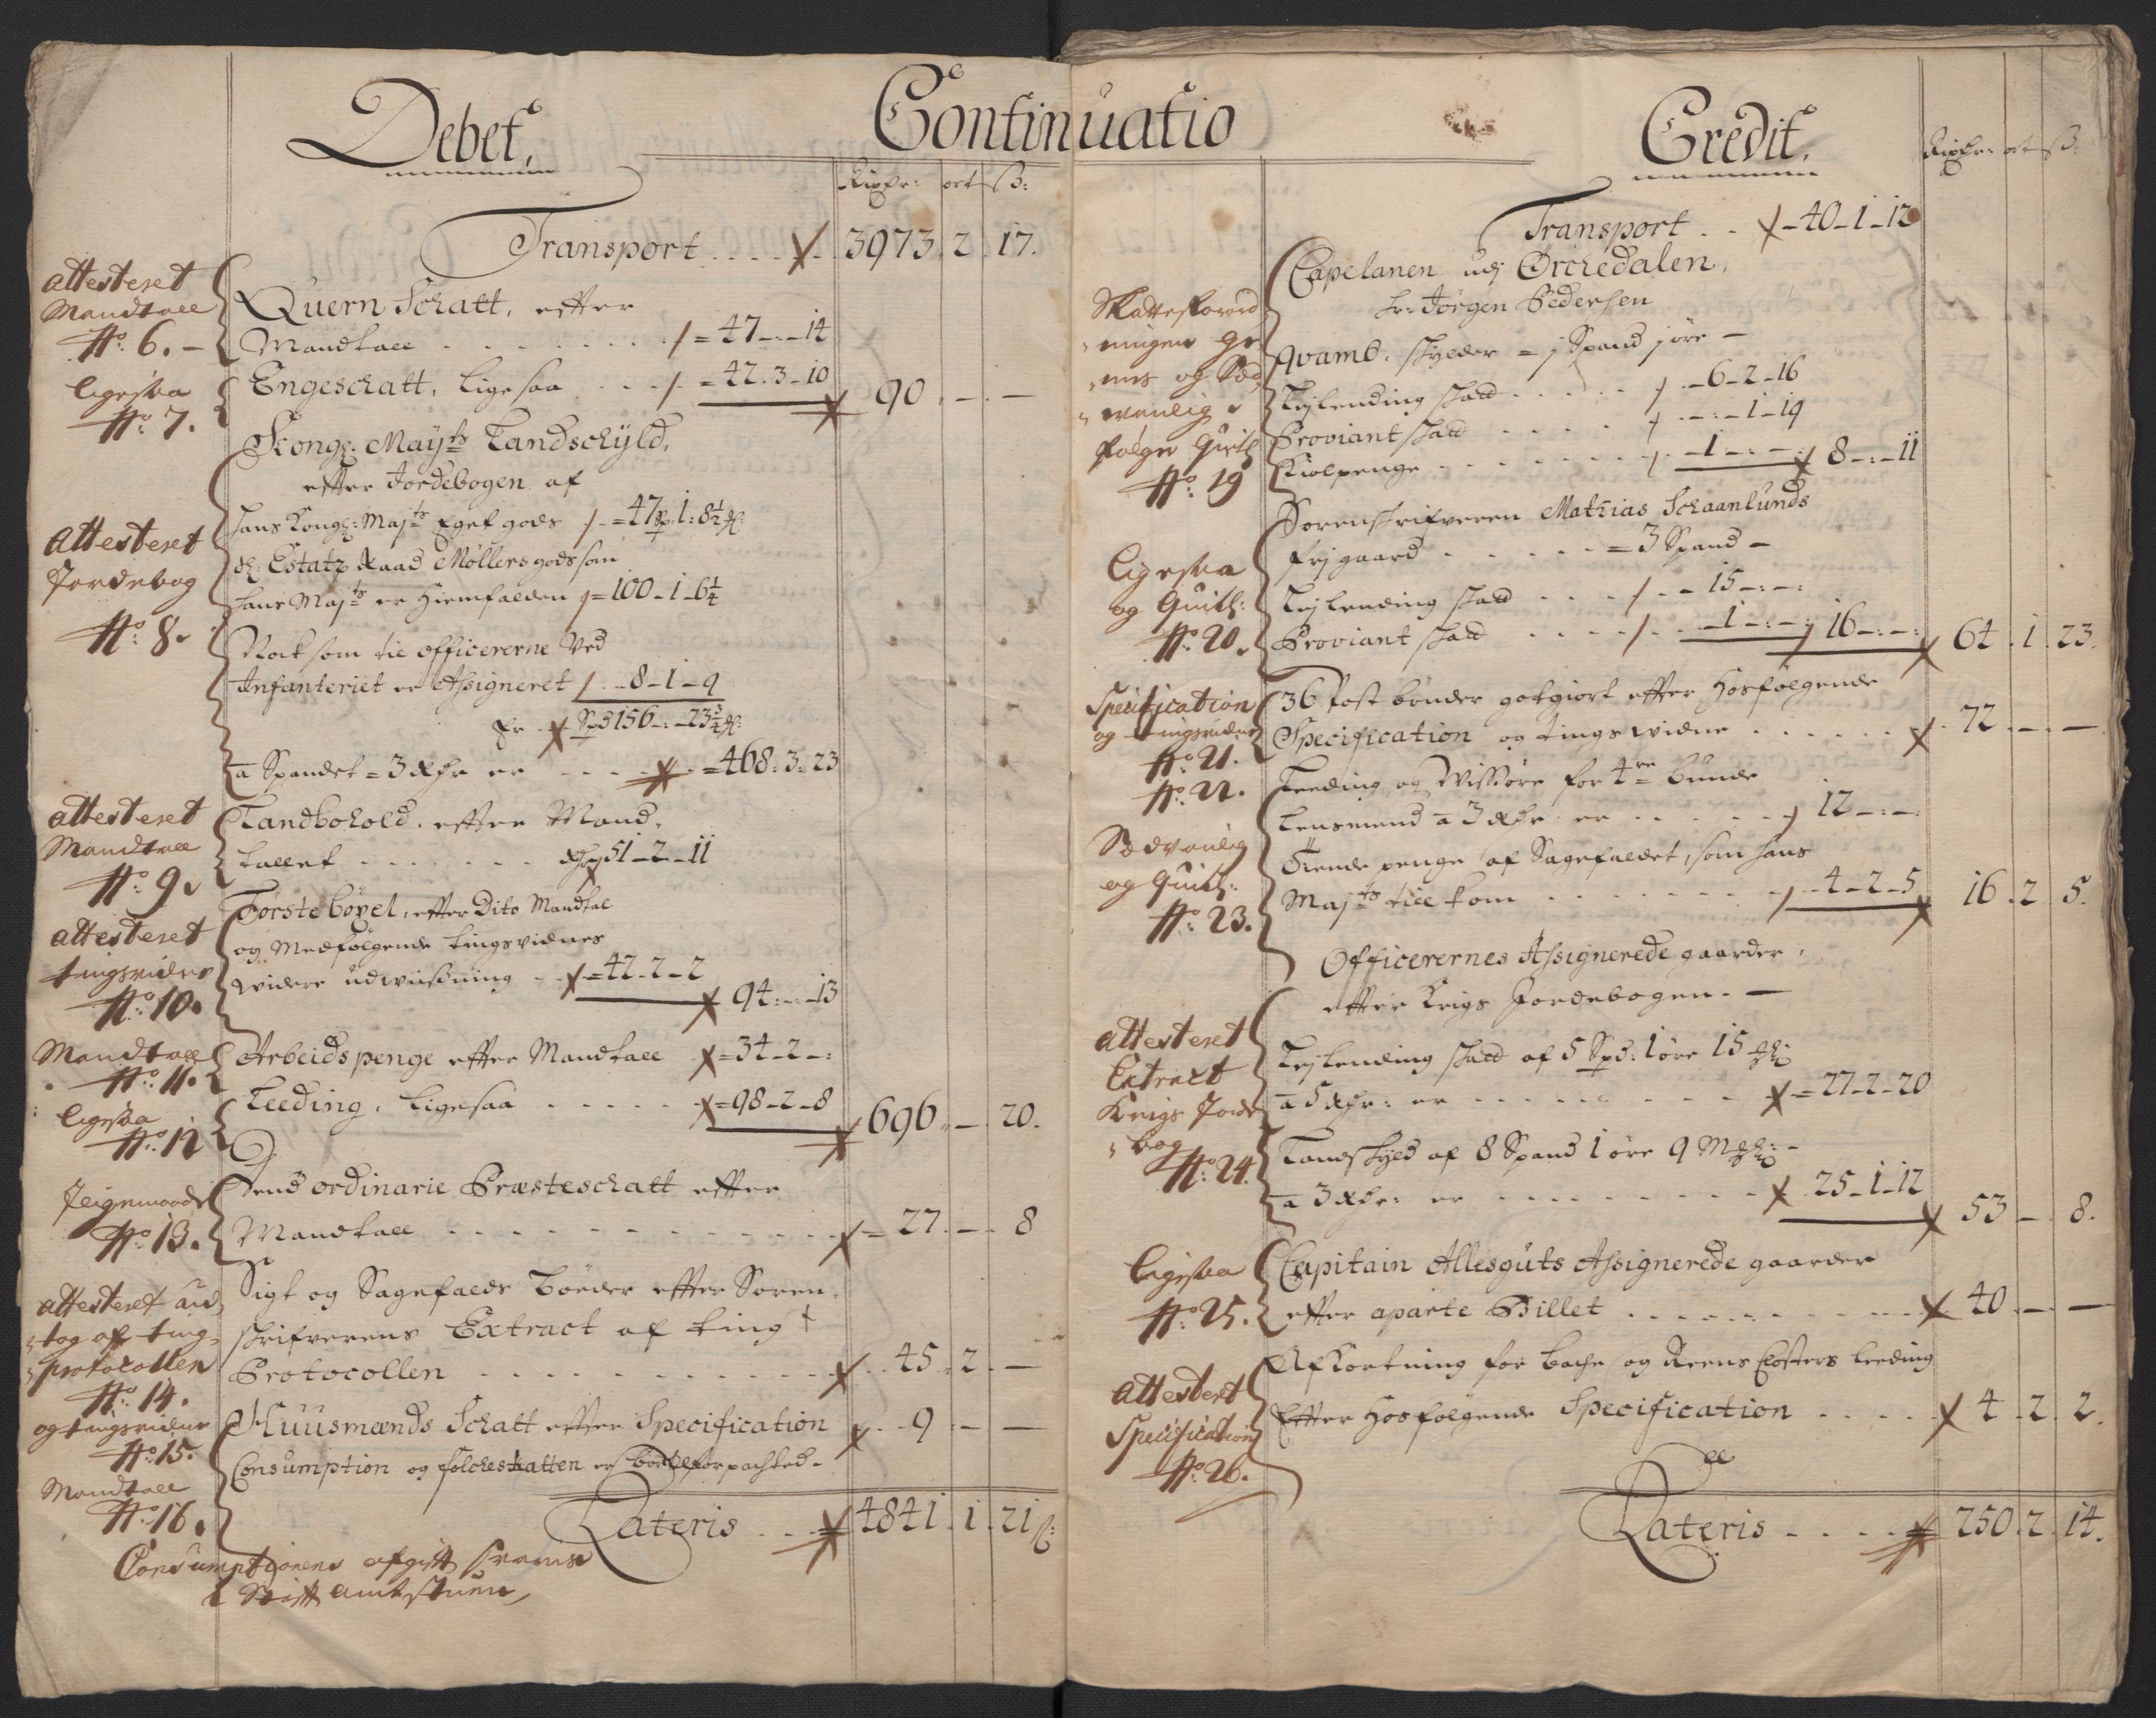 Debet, Continuatio Credit,
Rixdr: ort ß:
Transport . . . . 3973. 2. 17.
attesteret
Mandtall
No: 6. –
Quern Schatt, effter
Mandtall . . . . . . . = 47 –:– 14
ligesaa
No: 7.
Engeschatt, ligesaa . . . = 42. 3 – 10
90. – . –
Kongl: Mayts Landschyld,
effter Jordebogen af
attesteret
Jordebog
No: 8.
hans Kongl: Majts Eget gods . = 47 Sp: 1: 8½
Estatz Raad Møllers gods som
hans Majts er hiemfalden = 100 – 1 – 6¼
Nock som til officererne ved
Infanteriet er Assigneret . . 8 – 1 – 9
Er . Spd 156 –:– 23¾
a Spandet = 3 Rdr er . . . . = 468: 3: 23
attesteret
Mandtall
No: 9.
Landbohold, effter Mand,
tallet . . . . . . . Rdr 51 – 2 – 11
attesteret
tingsvidne
No: 10.
Förstebøxel, effter Dito Mandtal
og Medfølgende tingsvidnes
widere udwiisning . . = 42 – 2 – 2
94 –:– 13
Mandtall
No: 11.
Arbeids penge effter Mandtall = 34 – 2 –:
ligesaa
No: 12
Leeding, ligesaa . . . . . = 98 – 2 – 8
696. – . 20.
Ligemaade
No: 13.
Dend ordinarie Præsteschatt effter
Mandtall . . . . . . . . . . = 27. – . 8
attesteret ud,
tog af ting,
protocollen
No: 14.
og tingsvidne
No: 15.
Sigt og Sagefalds Bøder effter Soren,
schrifverens Extract af ting
Protocollen . . . . . . . . . . 45. 2. –
Huusmænds Schatt effter Specification . . 9 – –
Mandtall
No: 16.
Consumption og folcheskatten er bortforpachted –
Lateris . . . 4841. 1. 21 ß:
Consumptionens afgift svares
i Stifft amtstuen
Rixdr: ort ß:
Transport . . – 40 – 1 – 12
Capelanen udj Örchedalen,
hr: Jörgen Pedersen
No: 19
Qvamb, schylder = j Spand j öre –
Lejlending skatt . . . . . . – 6 – 2 – 16
Proviant skatt . . . . . –:– 1 – 19
Kiolpenge . . . . . . . . – 1 –:–
8 –:– 11
ligesaa
og Quith:
No: 20.
Sorenskrifveren Mathias Schaanlunds
frj gaard . . . . . . = 3 Spand –
Lejlending skatt . . . . – 15 –:–:
Proviant skatt . . . . . – 1 –:–
16 –:–:
64. 1. 23.
Specification
og tingsvidne
No: 21.
36 Post bönder gotgiort effter hosfølgende
Specification og tings widne . . . . . . 72. – . –
No: 22.
Leeding og Wissöre for 4re bunde
lensmend a 3 Rdr: er . . . . . 12 –:–:
Sædvanlig
og Quith:
No: 23.
Tiende penge af Sagefaldet, som hans
Majts till kom . . . . . . . . . 4 – 2 – 5
16. 2. 5.
Officerernes Assignerede gaarder,
effter Krigs Jordebogen. –
attesteret
Extract
Krigs Jorde
bog
No: 24.
Lejlending skatt af 5 Spd: 1 öre 15
a 5 Rdr: er . . . . . . . . = 27 – 2 – 20
Landskyld af 8 Spand 1 öre 9
a 3 Rdr: er . . . . . . . . 25 – 1 – 12
53 – . 8.
ligesaa
No: 25.
Capitain Allesguts Assignerede gaarder
effter aparte Billet . . . . . . . . . . 40. – . –
attesteret
Specification
No: 26.
Afkortning for Bache og Reens Closters leeding
Effter hosfølgende Specification . . . . 4. 2. 2.
Lateris . . . . . 250. 2. 14.